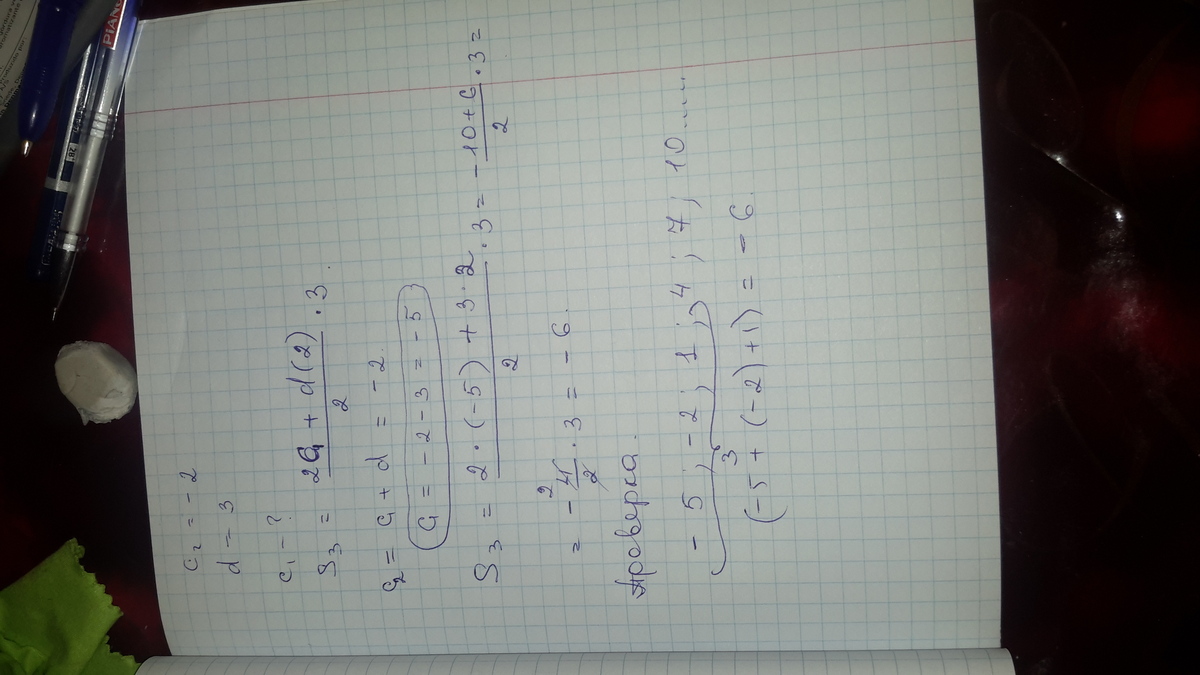 c₂ = -2
d = 3
c₁ - ?
S₃ = (2c₁ + d(2))/2 · 3.
c₂ = c₁ + d = -2.
c₁ = -2 - 3 = -5
S₃ = (2·(-5) + 3·2)/2 · 3 = (-10+6)/2 · 3 =
= -4/2 · 3 = -6.
2
Проверка.
-5; -2; 1; 4; 7; 10.....
3
(-5 + (-2) + 1) = -6.
PIANO